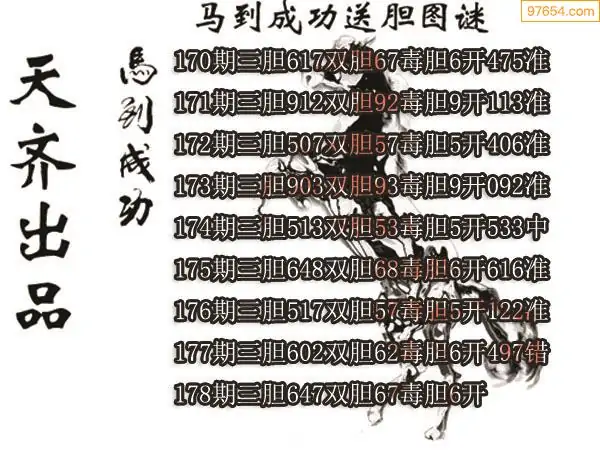 97654.com
马到成功送胆图谜
天齐出品
馬到成功
170期三胆617双胆67毒胆6开475准
171期三胆912双胆92毒胆9开113准
172期三胆507双胆57毒胆5开406准
173期三胆903双胆93毒胆9开092准
174期三胆513双胆53毒胆5开533中
175期三胆648双胆68毒胆6开616准
176期三胆517双胆57毒胆5开122准
177期三胆602双胆62毒胆6开497错
178期三胆647双胆67毒胆6开